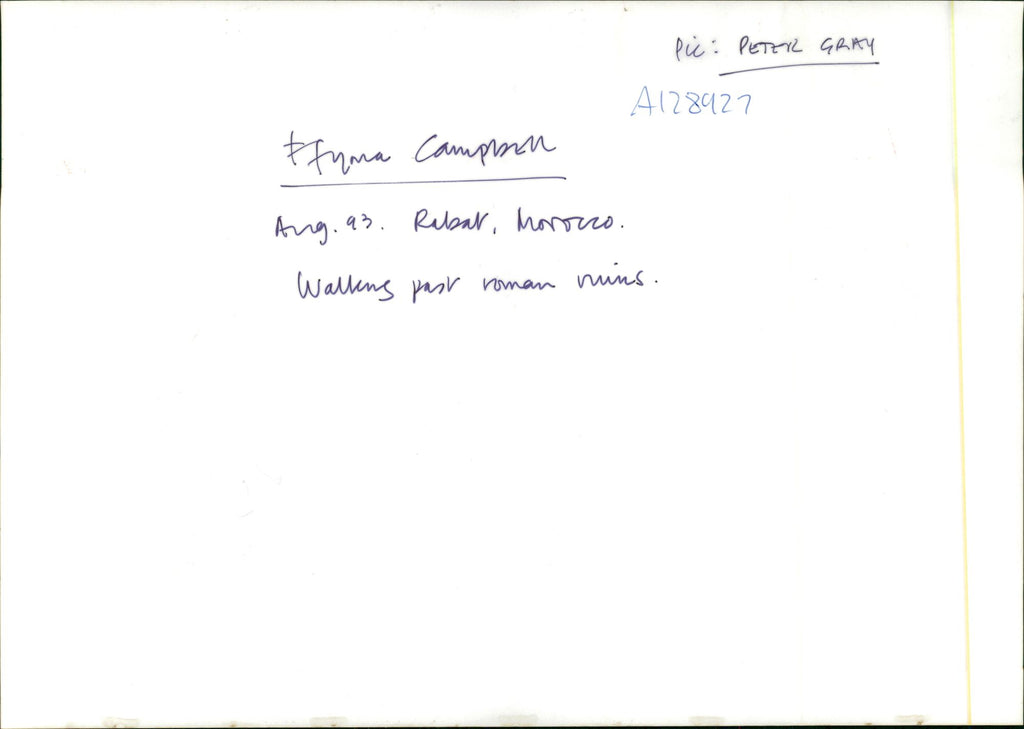 Pic: PETER GRAY
A128927
Ffyona Campbell
Aug. 93. Rabat, Morocco.
Walking past roman ruins.